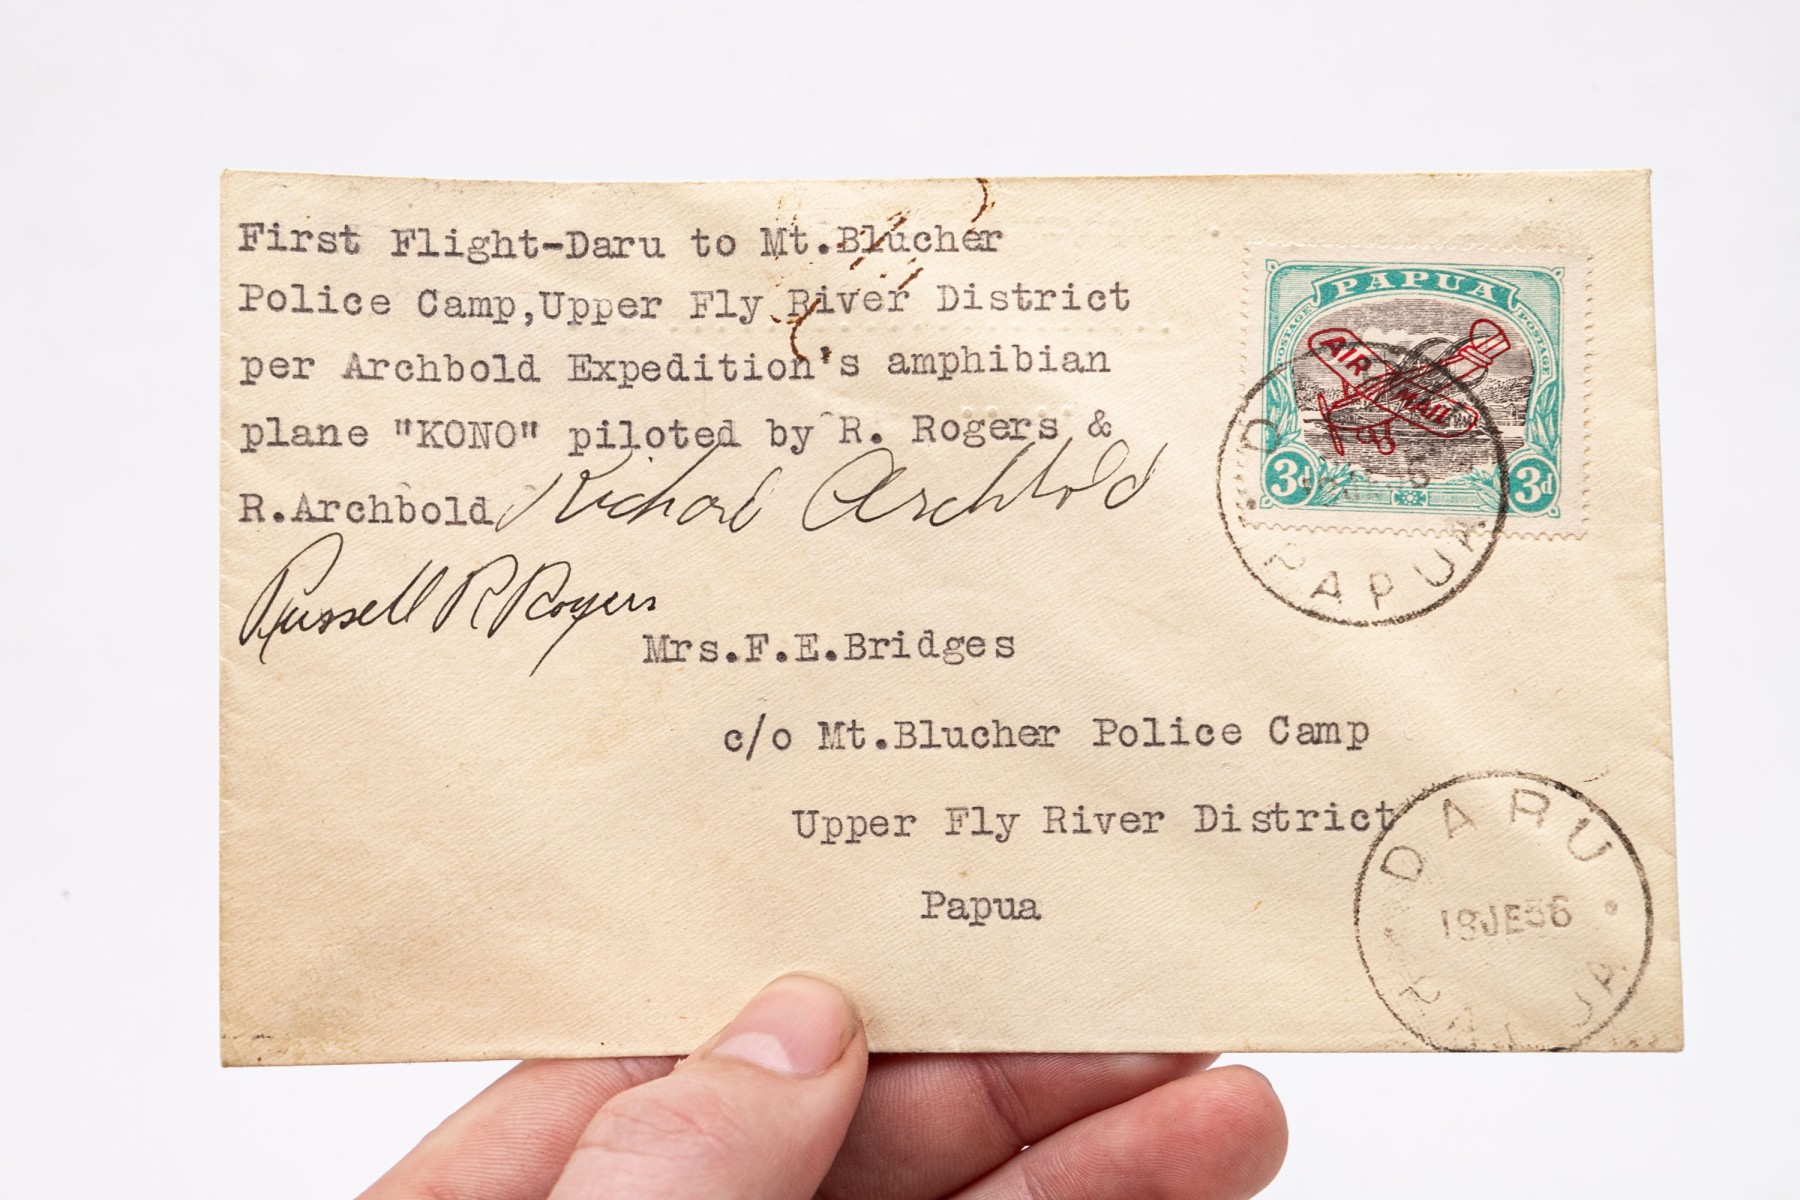 First Flight-Daru to Mt.Blucher
Police Camp,Upper Fly River District
per Archbold Expedition's amphibian
plane "KONO" piloted by R. Rogers &
R.Archbold
Richard Archbold
Russell R Rogers
PAPUA
POSTAGE
POSTAGE
AIR MAIL
3d
3d
PAPUA
Mrs.F.E.Bridges
c/o Mt.Blucher Police Camp
Upper Fly River District
Papua
DARU
18JE36
PAPUA